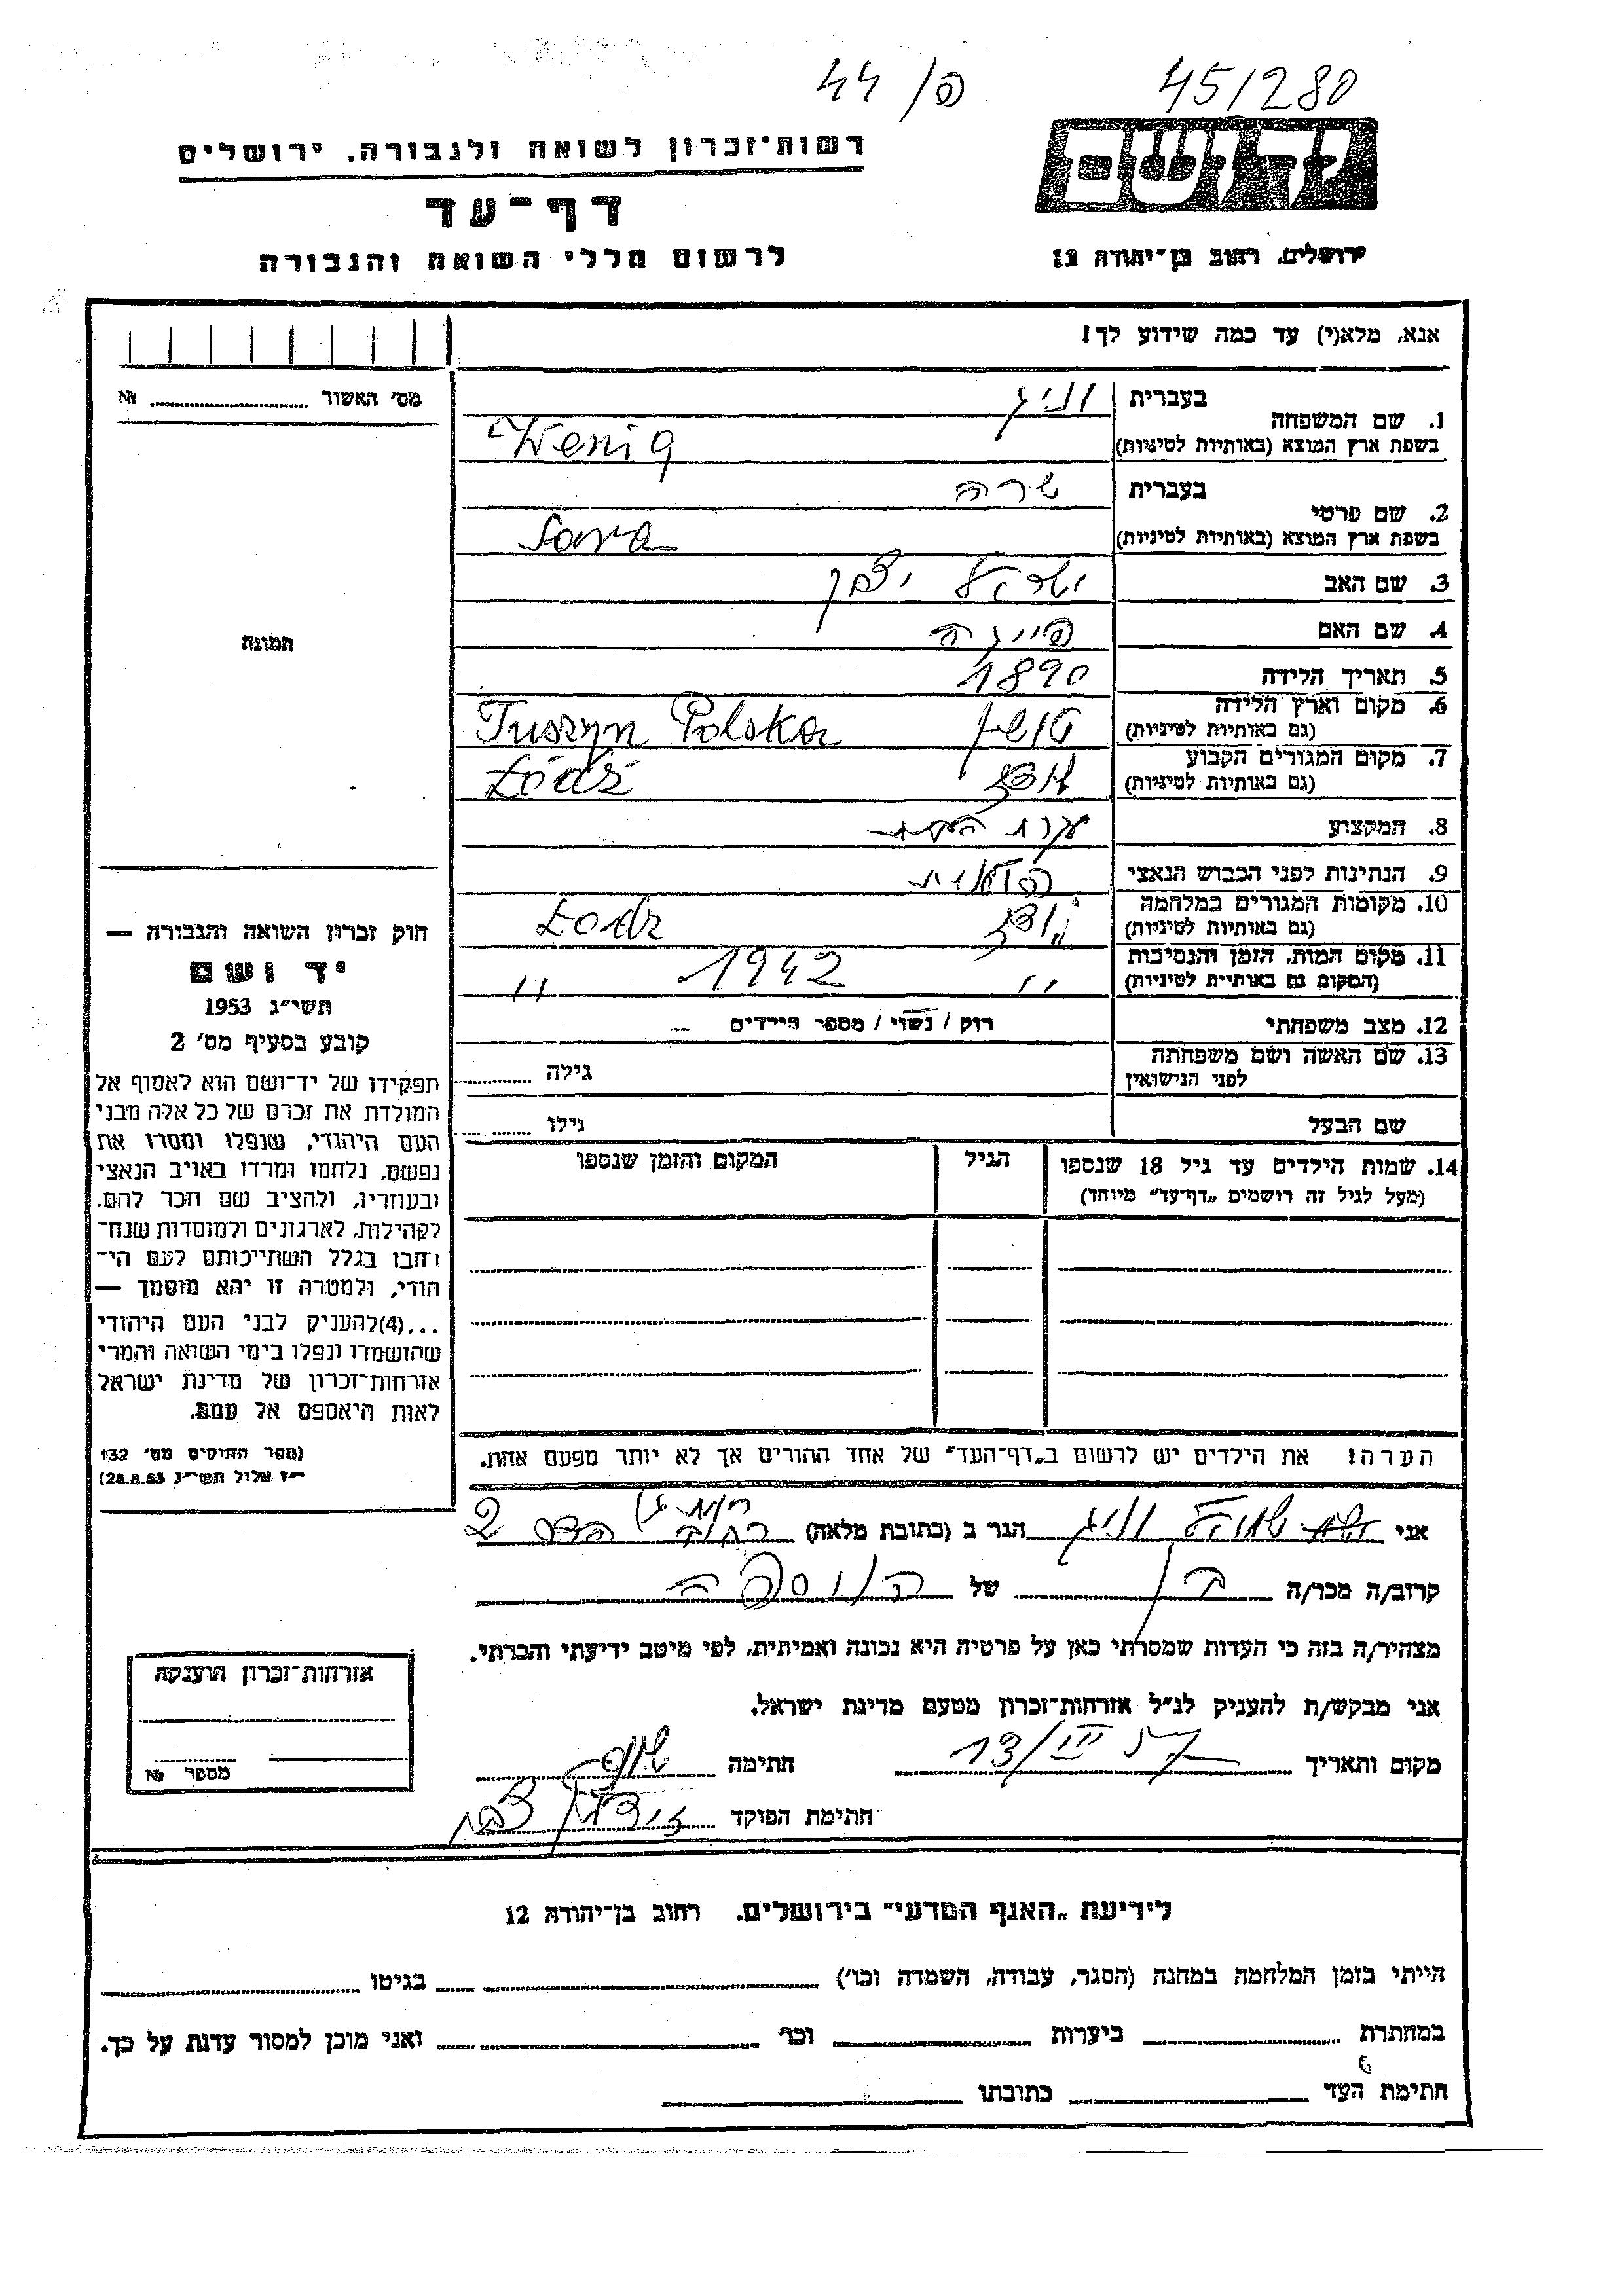 45/280
פ/ 44
יד ושם
רשות־זכרון לשואה ולגבורה, ירושלים
דף־עד
לרשום חללי השואה והגבורה
ירושלים, רחוב בן־יהודה 12
אנא, מלא(י) עד כמה שידוע לך!
מס׳ האשור № 
1. שם המשפחה
בעברית וניג
בשפת ארץ המוצא (באותיות לטיניות) Wenig
2. שם פרטי
בעברית שרה
בשפת ארץ המוצא (באותיות לטיניות) Sara
3. שם האב ישראל יצחק
4. שם האם פייגה
5. תאריך הלידה 1890
6. מקום וארץ הלידה (גם באותיות לטיניות) טושין Tuszyn Polska
7. מקום המגורים הקבוע (גם באותיות לטיניות) לודז Łódź
8. המקצוע עקרת הבית
9. הנתינות לפני הכבוש הנאצי פולנית
10. מקומות המגורים במלחמה (גם באותיות לטיניות) לודז Łodz
11. מקום המות, הזמן והנסיבות (המקום גם באותיות לטיניות) " 1942 "
12. מצב משפחתי רוק / נשוי / מספר הילדים ...
13. שם האשה ושם משפחתה לפני הנישואין גילה
שם הבעל גילו
14. שמות הילדים עד גיל 18 שנספו
(מעל לגיל זה רושמים „דף־עד" מיוחד)
הגיל
המקום והזמן שנספו
הערה! את הילדים יש לרשום ב„דף־העד" של אחד ההורים אך לא יותר מפעם אחת.
תמונה
חוק זכרון השואה והגבורה —
יד ושם
תשי״ג 1953
קובע בסעיף מס׳ 2
תפקידו של יד־ושם הוא לאסוף אל
המולדת את זכרם של כל אלה מבני
העם היהודי, שנפלו ומסרו את
נפשם, נלחמו ומרדו באויב הנאצי
ובעוזריו, ולהציב שם וזכר להם,
לקהילות, לארגונים ולמוסדות שנח־
רבו בגלל השתייכותם לעם הי־
הודי, ולמטרה זו יהא מוסמך —
...(4)להעניק לבני העם היהודי
שהושמדו ונפלו בימי השואה והמרי
אזרחות־זכרון של מדינת ישראל
לאות היאספם אל עמם.
(ספר החוקים מס׳ 132
י״ז אלול תשי״ג 28.8.53)
אני שמואל וניג הגר ב (כתובת מלאה) רמת גן רחוב 2
קרוב/ה מכר/ה בן של הנספה
מצהיר/ה בזה כי העדות שמסרתי כאן על פרטיה היא נכונה ואמיתית, לפי מיטב ידיעתי והכרתי.
אני מבקש/ת להעניק לנ״ל אזרחות־זכרון מטעם מדינת ישראל.
מקום ותאריך 13/III חתימה
חתימת הפוקד
אזרחות־זכרון הוענקה
מספר №
לידיעת „האגף המדעי" בירושלים, רחוב בן־יהודה 12
הייתי בזמן המלחמה במחנה (הסגר, עבודה, השמדה וכו׳) בגיטו
במחתרת ביערות וכו׳ ואני מוכן למסור עדות על כך.
חתימת העד כתובתו